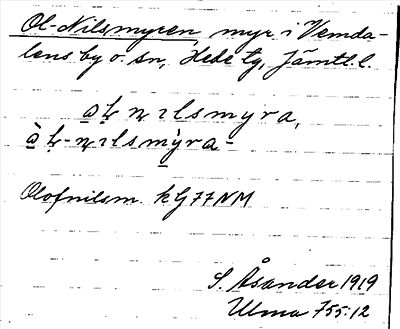 Ol-Nilsmyren, myr i Vemda-
lens by o. sn, Hede tg, Jämtl. l.
a̱ḷ ṇɪlsmyra,
à̱ḷ-ṇɪlsmỳra-
Olofnilsm. kG77NM
S. Åsander 1919
Ulma 755:12